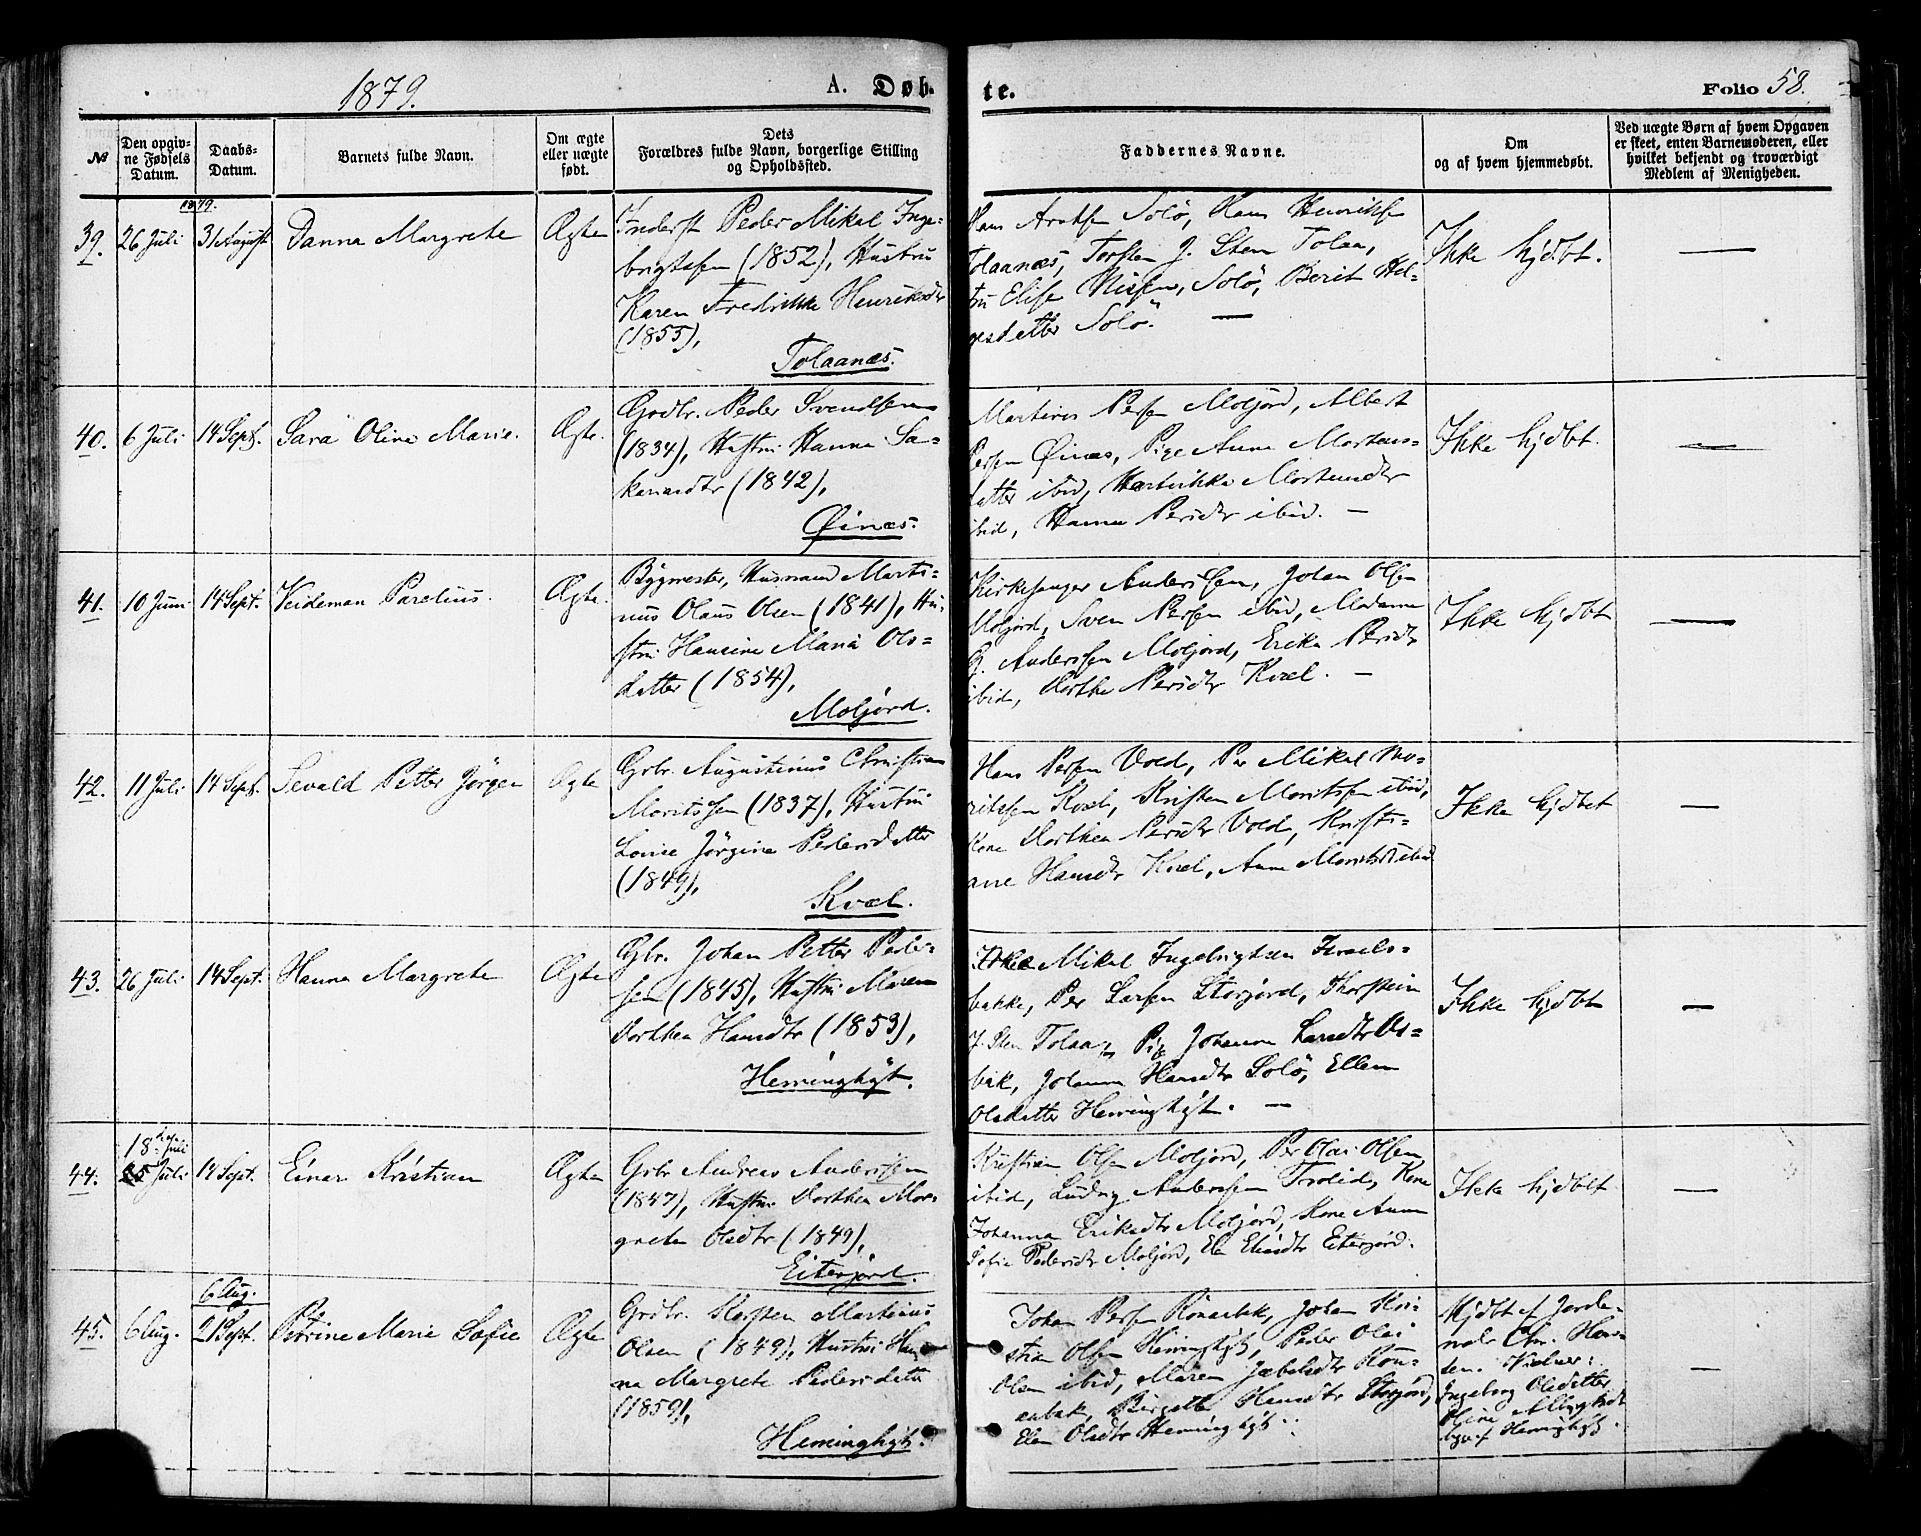 1879.
A. Døb-
te.
Folio 58.
№
Den opgiv-
ne Fødsels
Datum.
Daabs-
Datum.
Barnets fulde Navn.
Om ægte
eller uægte
født.
Dets
Forældres fulde Navn, borgerlige Stilling
og Opholdssted.
Faddernes Navne.
Om
og af hvem hjemmedøbt.
Ved uægte Børn af hvem Opgaven
er skeet, enten Barnemoderen, eller
hvilket bekjendt og troværdigt
Medlem af Menigheden.
1879.
39. 26 Juli 31 August Danna Margrete Ægte
Inderst Peder Mikal Inge-
brigtsen (1852), Hustru
Karen Fredrikke Henriksdtr
(1855),
Tolaanæs.
Hans Arntsen Solö, Hans Henriksen
Tolaanæs, Torsten J. Sten Tolaa,
Elise Nilsen, Solö, Berit Hel-
gesdatter Solö. —
Ikke hjdbt. —
40. 6 Juli 14 Sept. Sara Oline Marie. Ægte.
Grdbr. Peder Svendsen
(1834), Hustru Hanna Za-
kariasdtr (1842),
Øinæs.
Martinus Persen Moljord, Albert
Persen Øinæs, Pige Anna Mortens-
datter ibid, Hartvikka Mortensdtr
ibid, Hanna Persdtr ibid. —
Ikke hjdbt. —
41. 10 Juni 14 Sept. Veideman Parelius. Ægte.
Bygmester, Husmand Marti-
nus Olaus Olsen (1841), Hu-
stru Hansine Maria Ols-
datter (1854),
Moljord.
Kirkesanger Anderssen, Johan Olsen
Moljord, Sven Persen ibid, Madame
G. Anderssen Moljord, Erika Persdtr
ibid, Dorthe Persdtr Kvæl. —
Ikke hjdbt —
42. 11 Juli 14 Sept. Sevald Petter Jörgen Ægte
Grbr. Augustinus Christian
Moritssen (1837), Hustru
Lovise Jörgine Pedersdatter
(1849),
Kvæl.
Hans Persen Vold, Per Mikal Mo-
ritssen Kvæl, Kristen Moritssen ibid,
Kone Dorthea Persdtr Vold, Kristi-
ane Hansdtr Kvæl, Anna Moritsdtr ibid
Ikke hjdbt —
43. 26 Juli 14 Sept. Hanna Margrete Ægte
Gbr. Johan Petter Peder-
sen (1845), Hustru Maren
Dorthea Hansdtr (1853),
Hemingh​yt.
Mikal Ingebrigtsen Israels-
bakke, Per Larsen Storjord, Thorstein
J. Sten Tolaa, Pige Johanna Larsdtr Os-
bak, Johanna Hansdtr Solö, Ellen
Olsdatter Heminghyt. —
Ikke hjdbt —
44. 18 Juli 25 Juli 14 Sept. Einar Kristian Ægte
Grbr Andreas Anderssen
(1847), Hustru Dorthea Mar-
grete Olsdtr (1849),
Eiterjord.
Kristian Olsen Moljord, Per Olai Olsen
ibid, Ludvig Anderssen Trolid, Kone
Johanna Eriksdtr Moljord, Kone Anna
Sofie Pedersdtr Moljord, Elen Eliasdtr Eiterjord.
Ikke hjdbt. —
6 Aug.
45. 6 Aug. 21 Sept. Petrine Marie Sofie Ægte
Grdbr. Karsten Martinus
Olsen (1849), Hustru Han-
na Margrete Pedersdatter
(1859),
Heminghyt.
Johan Persen Rönaabak, Johan Kri-
stian Olsen Heminghyt, Peder Olai
Olsen ibid, Maren Jakobsdtr Rön-
aabak, Birgitte Hansdtr Storjord,
Elen Olsdtr Heminghyt.
Hjdbt af Jorde-
mdr Chr. Han-
sen. Vidner:
Ingeborg Olsdatter
Heminghyt. —